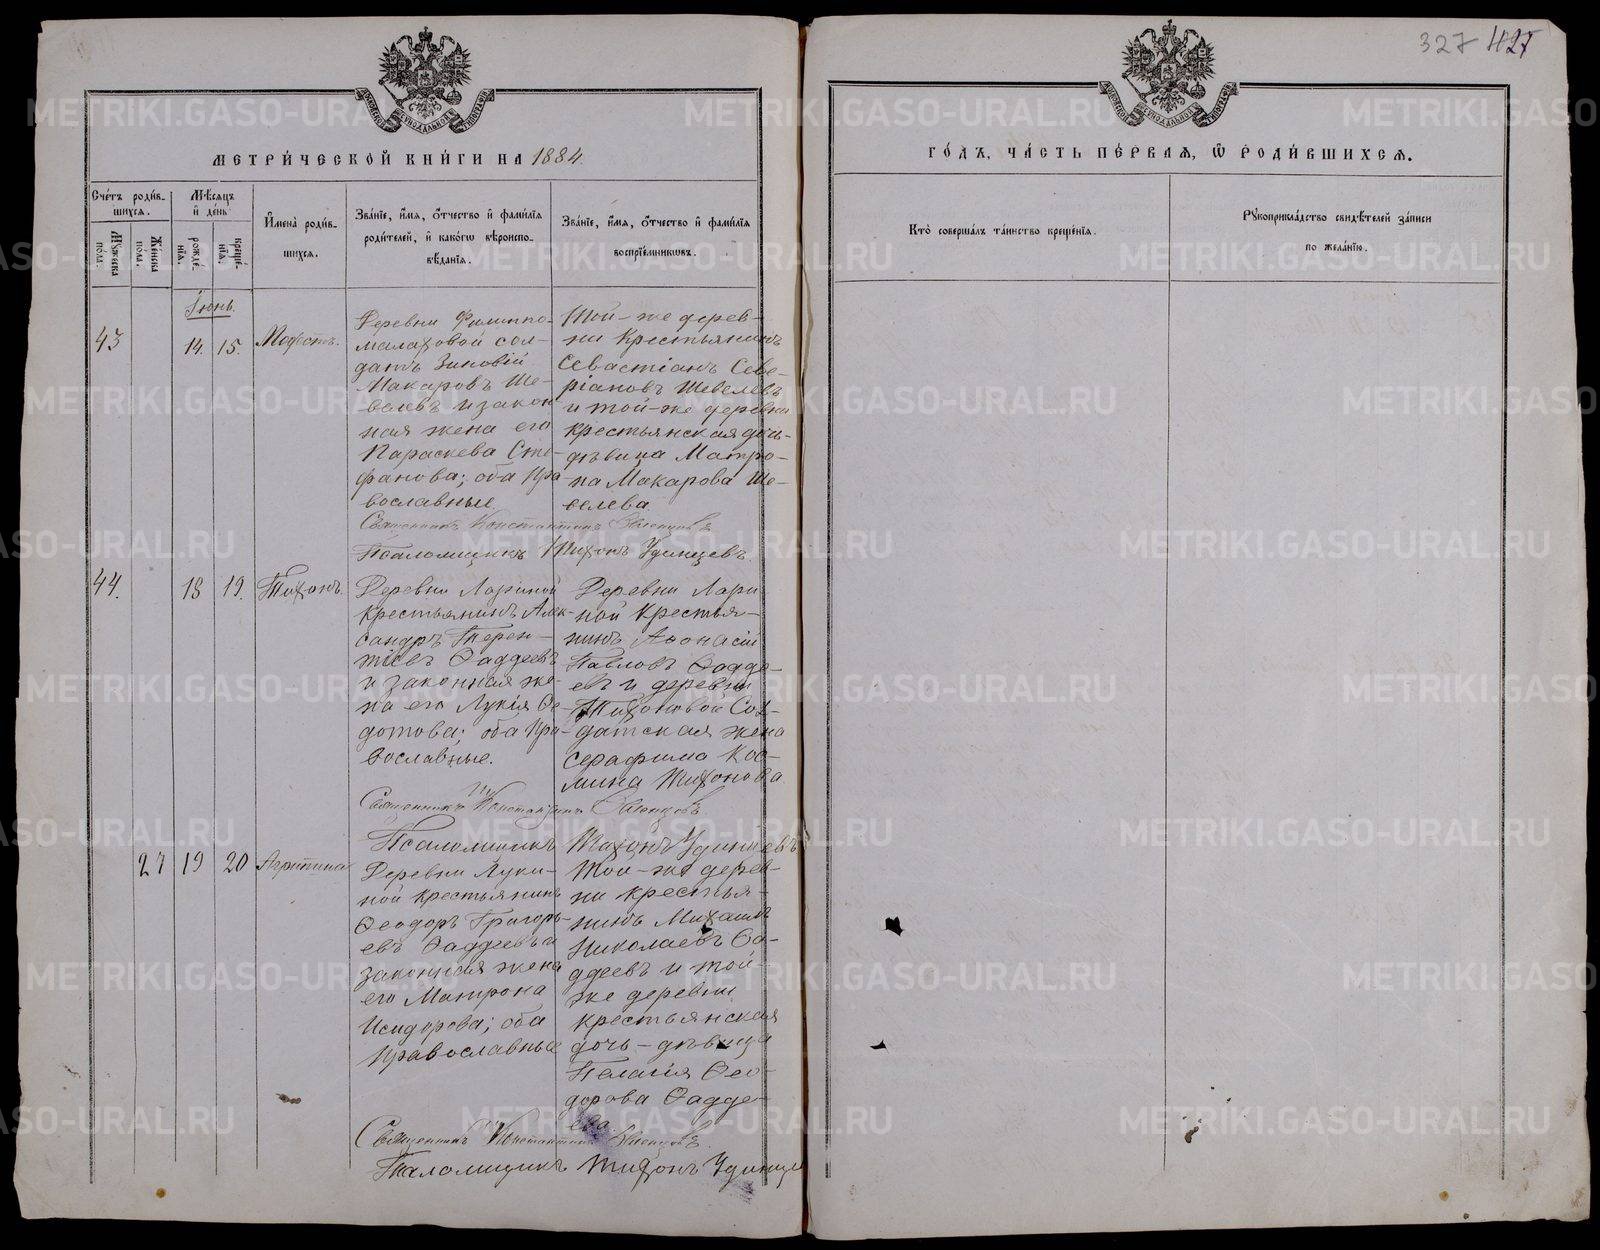 327 427
МЕТРИ́ЧЕСКОЙ КНИ́ГИ НА 1884.
ГО́ДЪ, ЧА́СТЬ ПЕ́РВАЯ, Ѿ РОДИ́ВШИХСЯ.
Сче́тъ роди́в-
шихся.
Мꙋжеска пола.
Женска пола.
Мѣ́сяцъ
и҆ де́нь
рожде́нїѧ.
креще́нїѧ.
И҆мена̀ роди́в-
шихся.
Зва́нїе, и҆́мѧ, ѻ҆́тчество и҆ фами́лїѧ
роди́телей, и҆ како́гѡ вѣроиспо-
вѣ́данїѧ.
Зва́нїе, и҆́мѧ, ѻ҆́тчество и҆ фами́лїѧ
воспрїе́мникѡвъ.
Кто̀ соверша́лъ та́инство креще́нїѧ.
Рꙋкоприкла́дство свидѣ́телей за́писи
по жела́нїю.
Іюнь.
43
14. 15.
Модестъ.
Деревни Филиппо-
малаховой сол-
датъ Зиновій
Макаровъ Ше-
велевъ и закон
ная жена его
Параскева Сте-
фанова; оба пра-
вославные.
Той-же дерев-
ни крестьянинъ
Севастіанъ Севе-
ріановъ Шевелевъ
и той-же деревни
крестьянская дочь-
дѣвица Матро-
на Макарова Ше-
велева.
Священникъ Константинъ
Псаломщикъ Тихонъ Удинцевъ.
44.
18 19.
Тихонъ.
Деревни Лариной
крестьянинъ Алек-
сандръ Терен-
тіевъ Ѳаддеевъ
и законная же-
на его Лукія Ѳе-
дотова; оба пра-
вославные.
Деревни Лари
ной крестья-
нинъ Аѳонасій
Павловъ Ѳадде-
евъ и деревни
Тихоновой сол-
датская жена
Серафима Кос-
мина Тихонова.
Священникъ Константинъ
Псаломщикъ Тихонъ Удинцевъ
27 19 20
Агрипина
Деревни Луки-
ной крестьянинъ
Ѳеодоръ Григорь-
евъ Ѳаддеевъ и
законная жена
его Матрона
Исидорова; оба
православные
Той-же дерев-
ни крестья-
нинъ Михаилъ
Николаевъ Ѳа-
ддеевъ и той-
же деревни
крестьянская
дочь-дѣвица
Пелагія Ѳео-
дорова Ѳадде-
ева.
Священникъ Константинъ
Псаломщикъ Тихонъ Удинце
METRIKI.GASO-URAL.RU